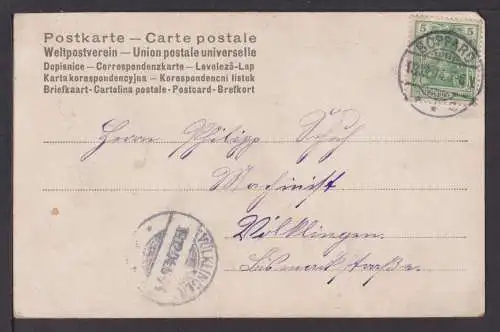 Postkarte – Carte postale
Weltpostverein – Union postale universelle
Dopisnice – Correspondenzkarte – Levelezö-Lap
Karta korespondencyjna – Korespondenčni listek
Briefkaart - Cartolina postale - Postcard - Brefkort
5 5
BOPPARD
Herrn Philipp Schuh
Machinist
Völklingen.
Bismarckstraße.
VÖLKLINGEN